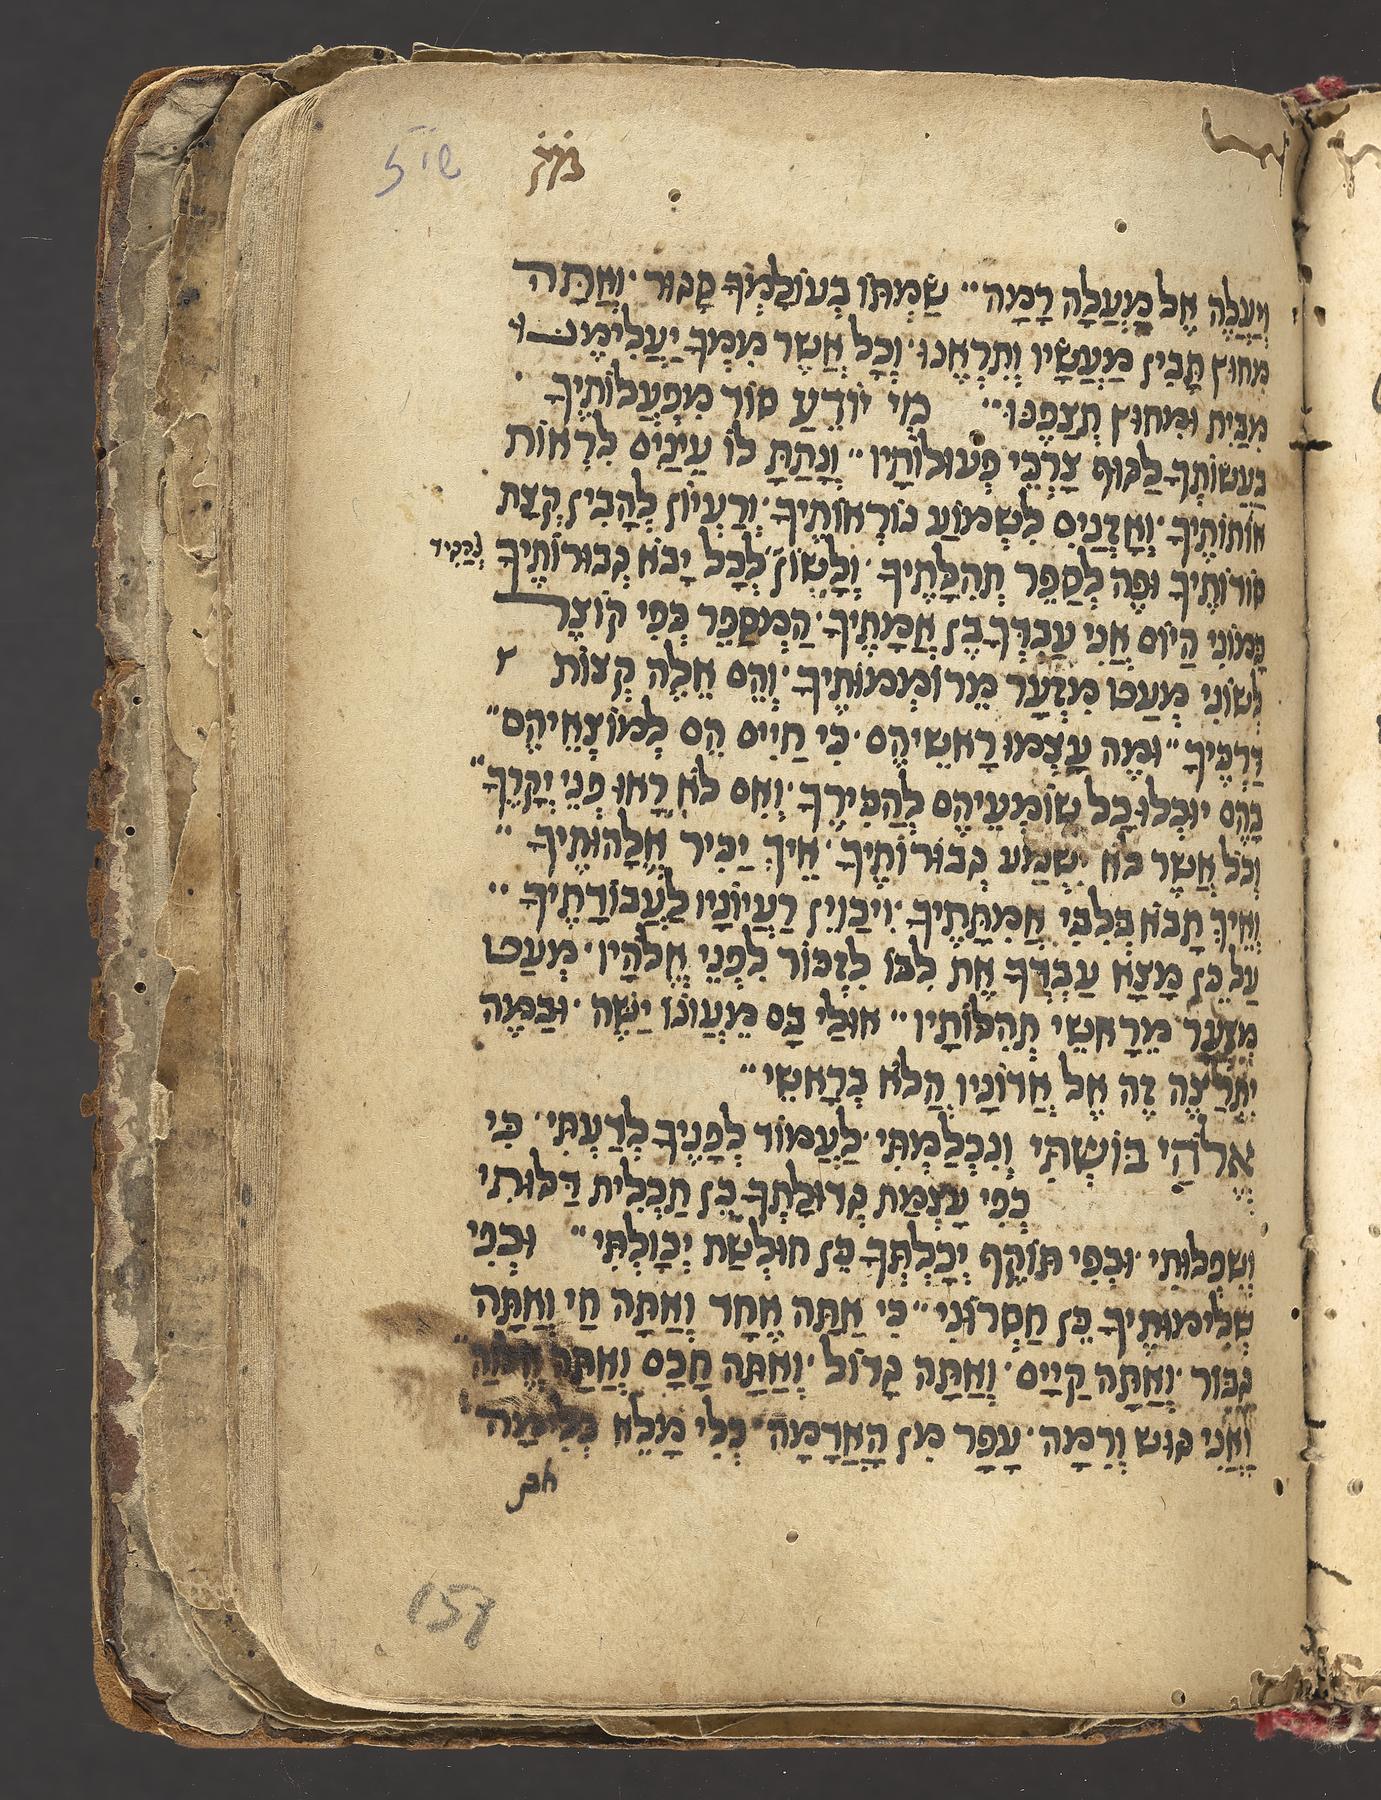 שו״ל
וַיַּעֲלֶה אֶל מַעְלָה רָמָה׃ שַׂמְתּוֹ בְעוֹלָמְךָ סָגוּר · וְאַתָּה
מִחוּץ תָּבִין מַעֲשָׂיו וְתִרְאֶנּוּ · וְכָל אֲשֶׁר מִמְּךָ יַעֲלִימֶנּוּ
מִבַּיִת וּמִחוּץ תְּצַפֶּנּוּ׃ מִי יוֹדֵעַ סוֹד מִפְעֲלוֹתֶיךָ ·
בַּעֲשׂוֹתְךָ לַגּוּף צָרְכֵי פְעוּלוֹתָיו׃ וְנָתַתָּ לוֹ עֵינַיִם לִרְאוֹת
אוֹתוֹתֶיךָ · וְאָזְנַיִם לִשְׁמוֹעַ נוֹרְאוֹתֶיךָ · וְרַעְיוֹן לְהָבִין קְצָת
סוֹדוֹתֶיךָ וּפֶה לְסַפֵּר תְּהִלָּתֶיךָ · וְלָשׁוֹן לְכָל יָבֹא גְבוּרוֹתֶיךָ
כָּמוֹנִי הַיּוֹם אֲנִי עַבְדְּךָ בֶּן אֲמָתֶיךָ · הַמְסַפֵּר כְּפִי קוֹצֶר
לְשׁוֹנִי מְעַט מִזְעָר מֵרוֹמְמוּתֶיךָ · וְהֵם אֵלֶּה קְצוֹת
דְּרָכֶיךָ׃ וּמֶה עָצְמוּ רָאשֵׁיהֶם · כִּי חַיִּים הֵם לְמוֹצְאֵיהֶם׃
בָּהֶם יוּכְלוּ כָּל שׁוֹמְעֵיהֶם לְהַכִּירֶךָ · וְאִם לֹא רָאוּ פְּנֵי יְקָרֶךָ׃
וְכֹל אֲשֶׁר לֹא יִשְׁמַע גְּבוּרוֹתֶיךָ · אֵיךְ יַכִּיר אֱלָהוּתֶיךָ׃
וְאֵיךְ תָּבֹא בְּלִבִּי אֲמִתָּתֶיךָ · וִיכַוֵּין רַעֲיוֹנָיו לַעֲבוֹדָתֶיךָ׃
עַל כֵּן מָצָא עַבְדְּךָ אֶת לִבּוֹ לִזְכּוֹר לִפְנֵי אֱלֹהָיו · מְעַט
מִזְעָר מֵרָאשֵׁי תְהִלּוֹתָיו׃ אוּלַי בָּם מֵעֲוֹנוֹ יַשֶּׁה · וּבַמֶּה
יִתְרַצֶּה זֶה אֶל אֲדוֹנָיו הֲלֹא בְּרָאשֵׁי׃
אֱלֹהַי בּוֹשְׁתִּי וְנִכְלַמְתִּי · לַעֲמוֹד לְפָנֶיךָ לְדַעְתִּי · כִּי
כְּפִי עָצְמַת גְּדוּלָּתְךָ כֵּן תַּכְלִית דַּלּוּתִי
וְשִׁפְלוּתִי · וּכְפִי תּוֹקֶף יְכָלְתְּךָ כֵּן חוּלְשַׁת יְכָוֹלְתִּי׃ וּכְפִי
שְׁלֵימוּתֶיךָ כֵּן חֶסְרוֹנִי׃ כִּי אַתָּה אֶחָד וְאַתָּה חַי וְאַתָּה
גִבּוֹר · וְאַתָּה קַיָּים · וְאַתָּה גָדוֹל · וְאַתָּה חָכָם וְאַתָּה אֱלוֹהַּ׃
וַאֲנִי גוּשׁ וְרִמָּה · עָפָר מִן הָאֲדָמָה · כְּלִי מָלֵא כְּלִימָּה ·
אבן
157